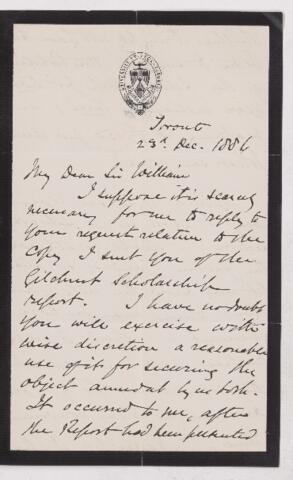 Toronto
23d Dec. 1886
My Dear Sir William
I suppose it is scarcely
necessary for me to reply to
your request relative to the
Copy I sent you of the
Gilchrist Scholarship
report. I have no doubt
you will exercise with
wise discretion a reasonable
use of it for securing the
object aimed at by us both.
It occurred to me, after
the Report had been presented